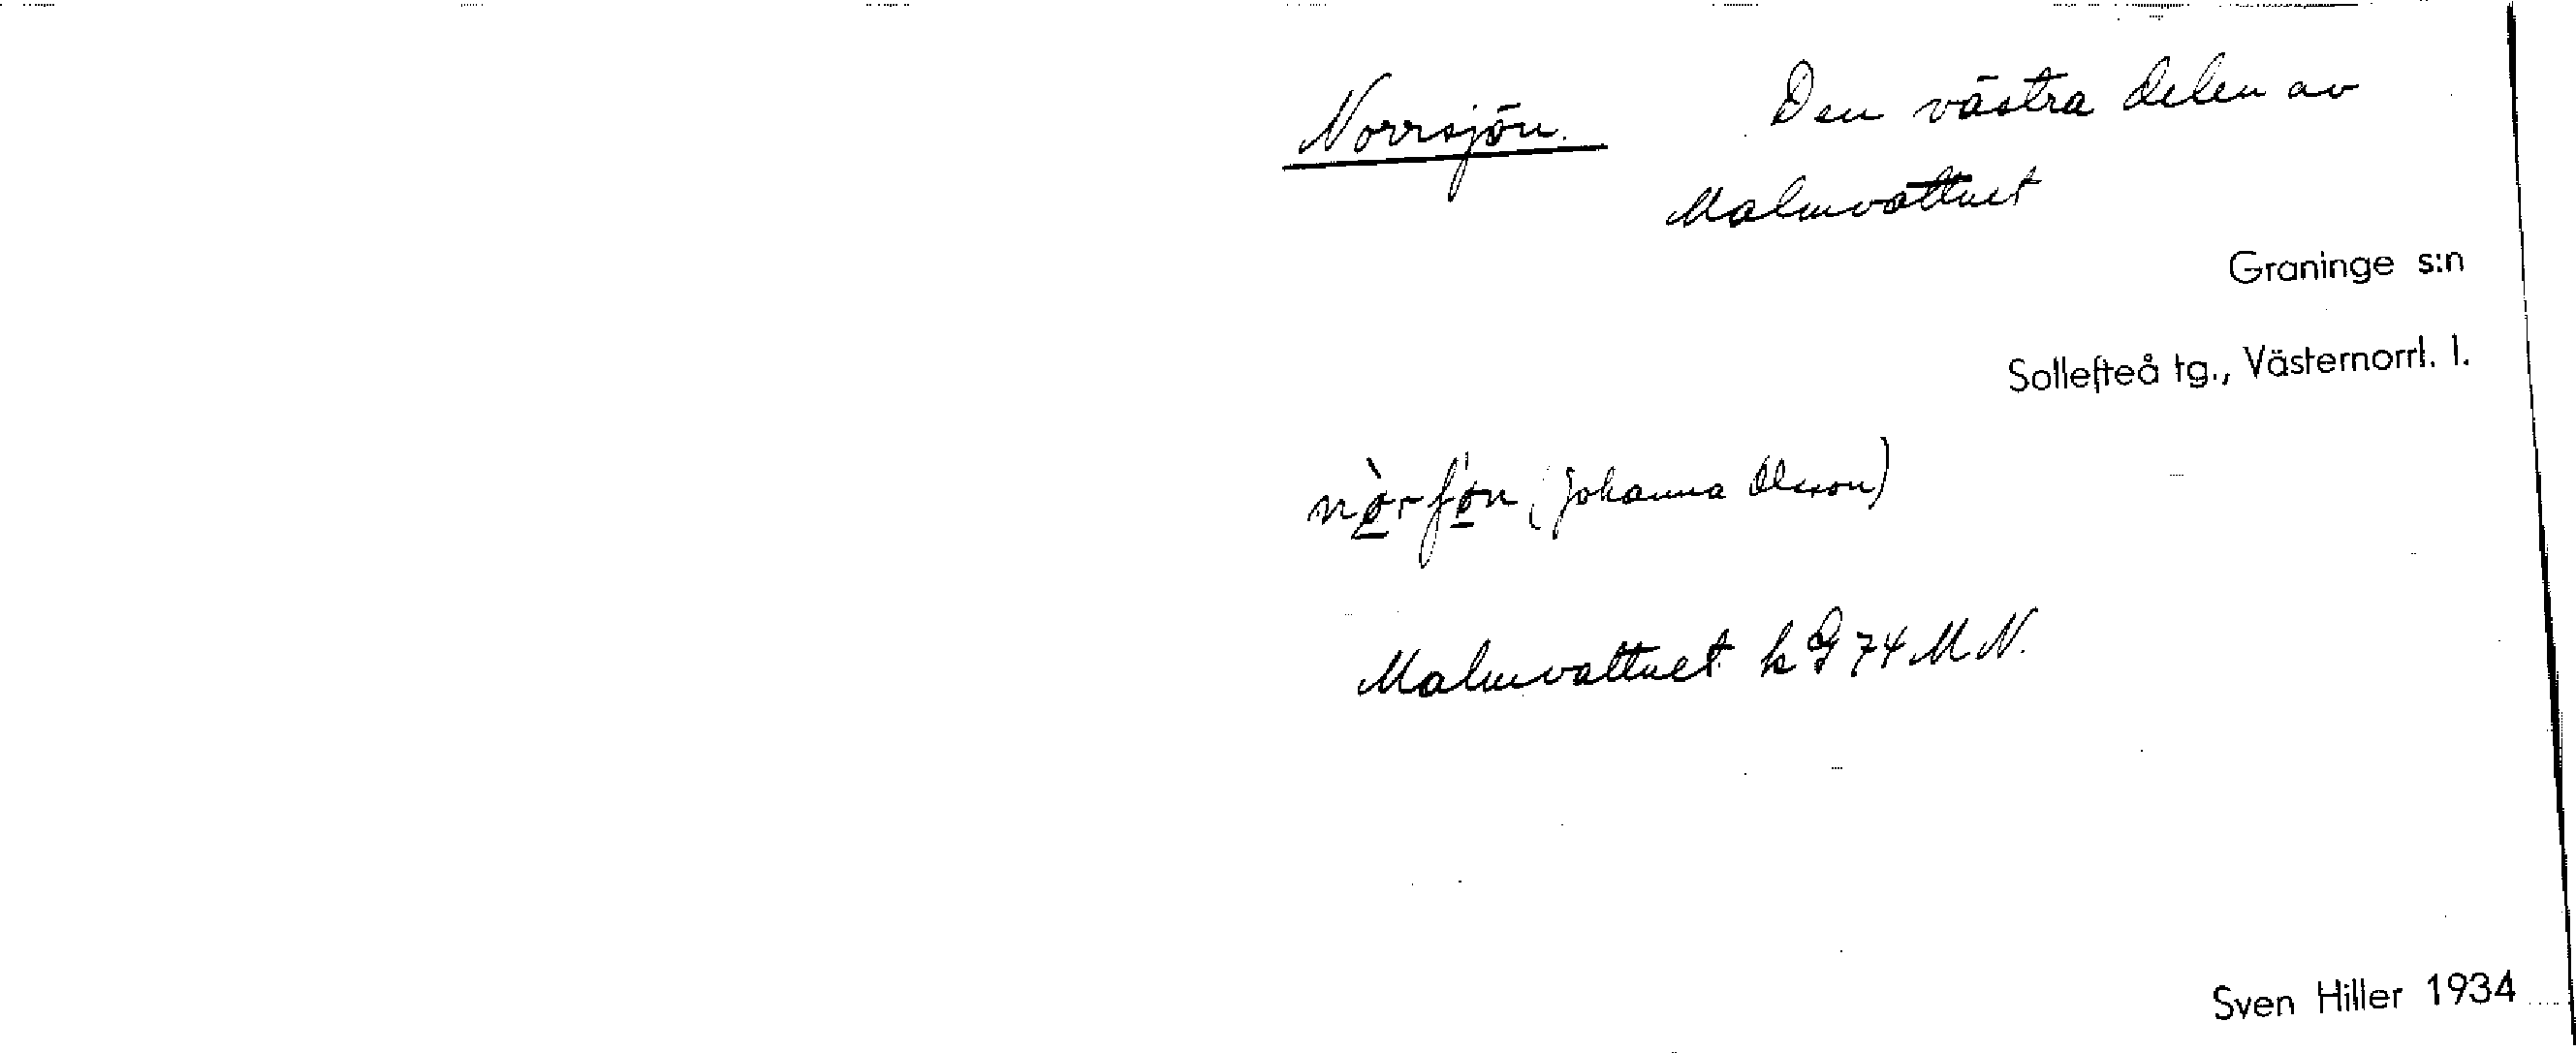 Norrsjön. Den västra delen av
Malmvattnet
Graninge s:n
Sollefteå tg., Västernorrl. l.
(Johanna Olsson)
Malmvattnet k G 74 M N.
Sven Hiller 1934